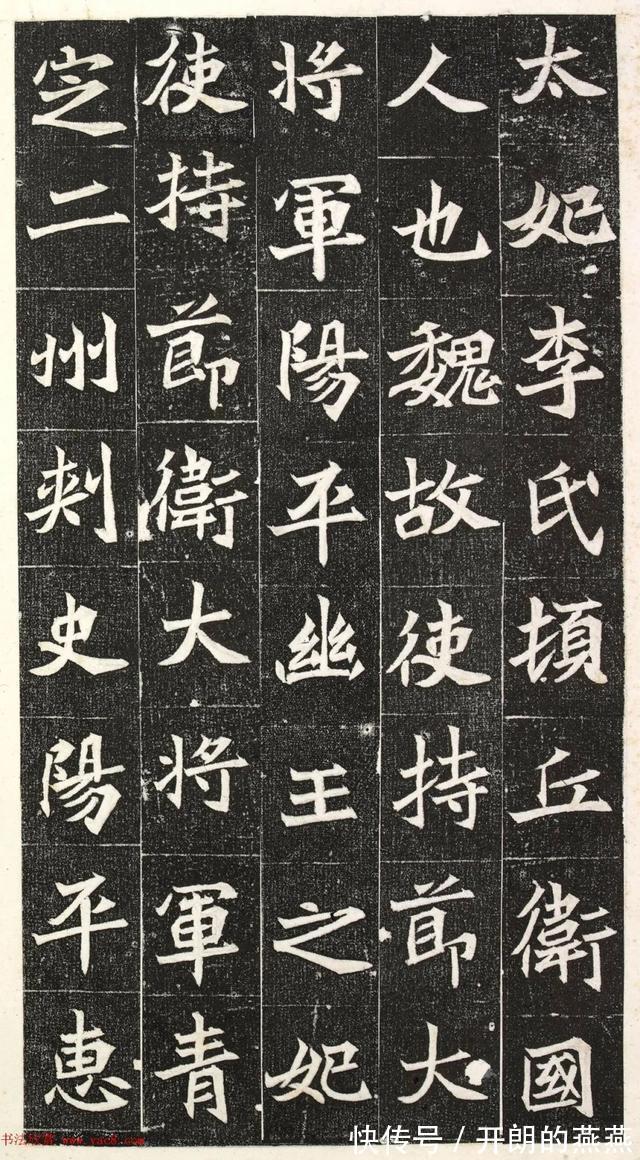 太妃李氏頓丘衛國
人也魏故使持節大
將軍陽平幽王之妃
使持節衛大將軍青
定二州刺史陽平惠
快传号/开朗的燕燕